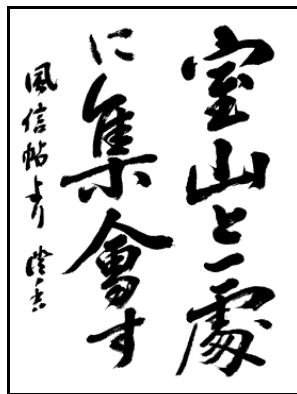 室山と一處
に集會す
風信帖より